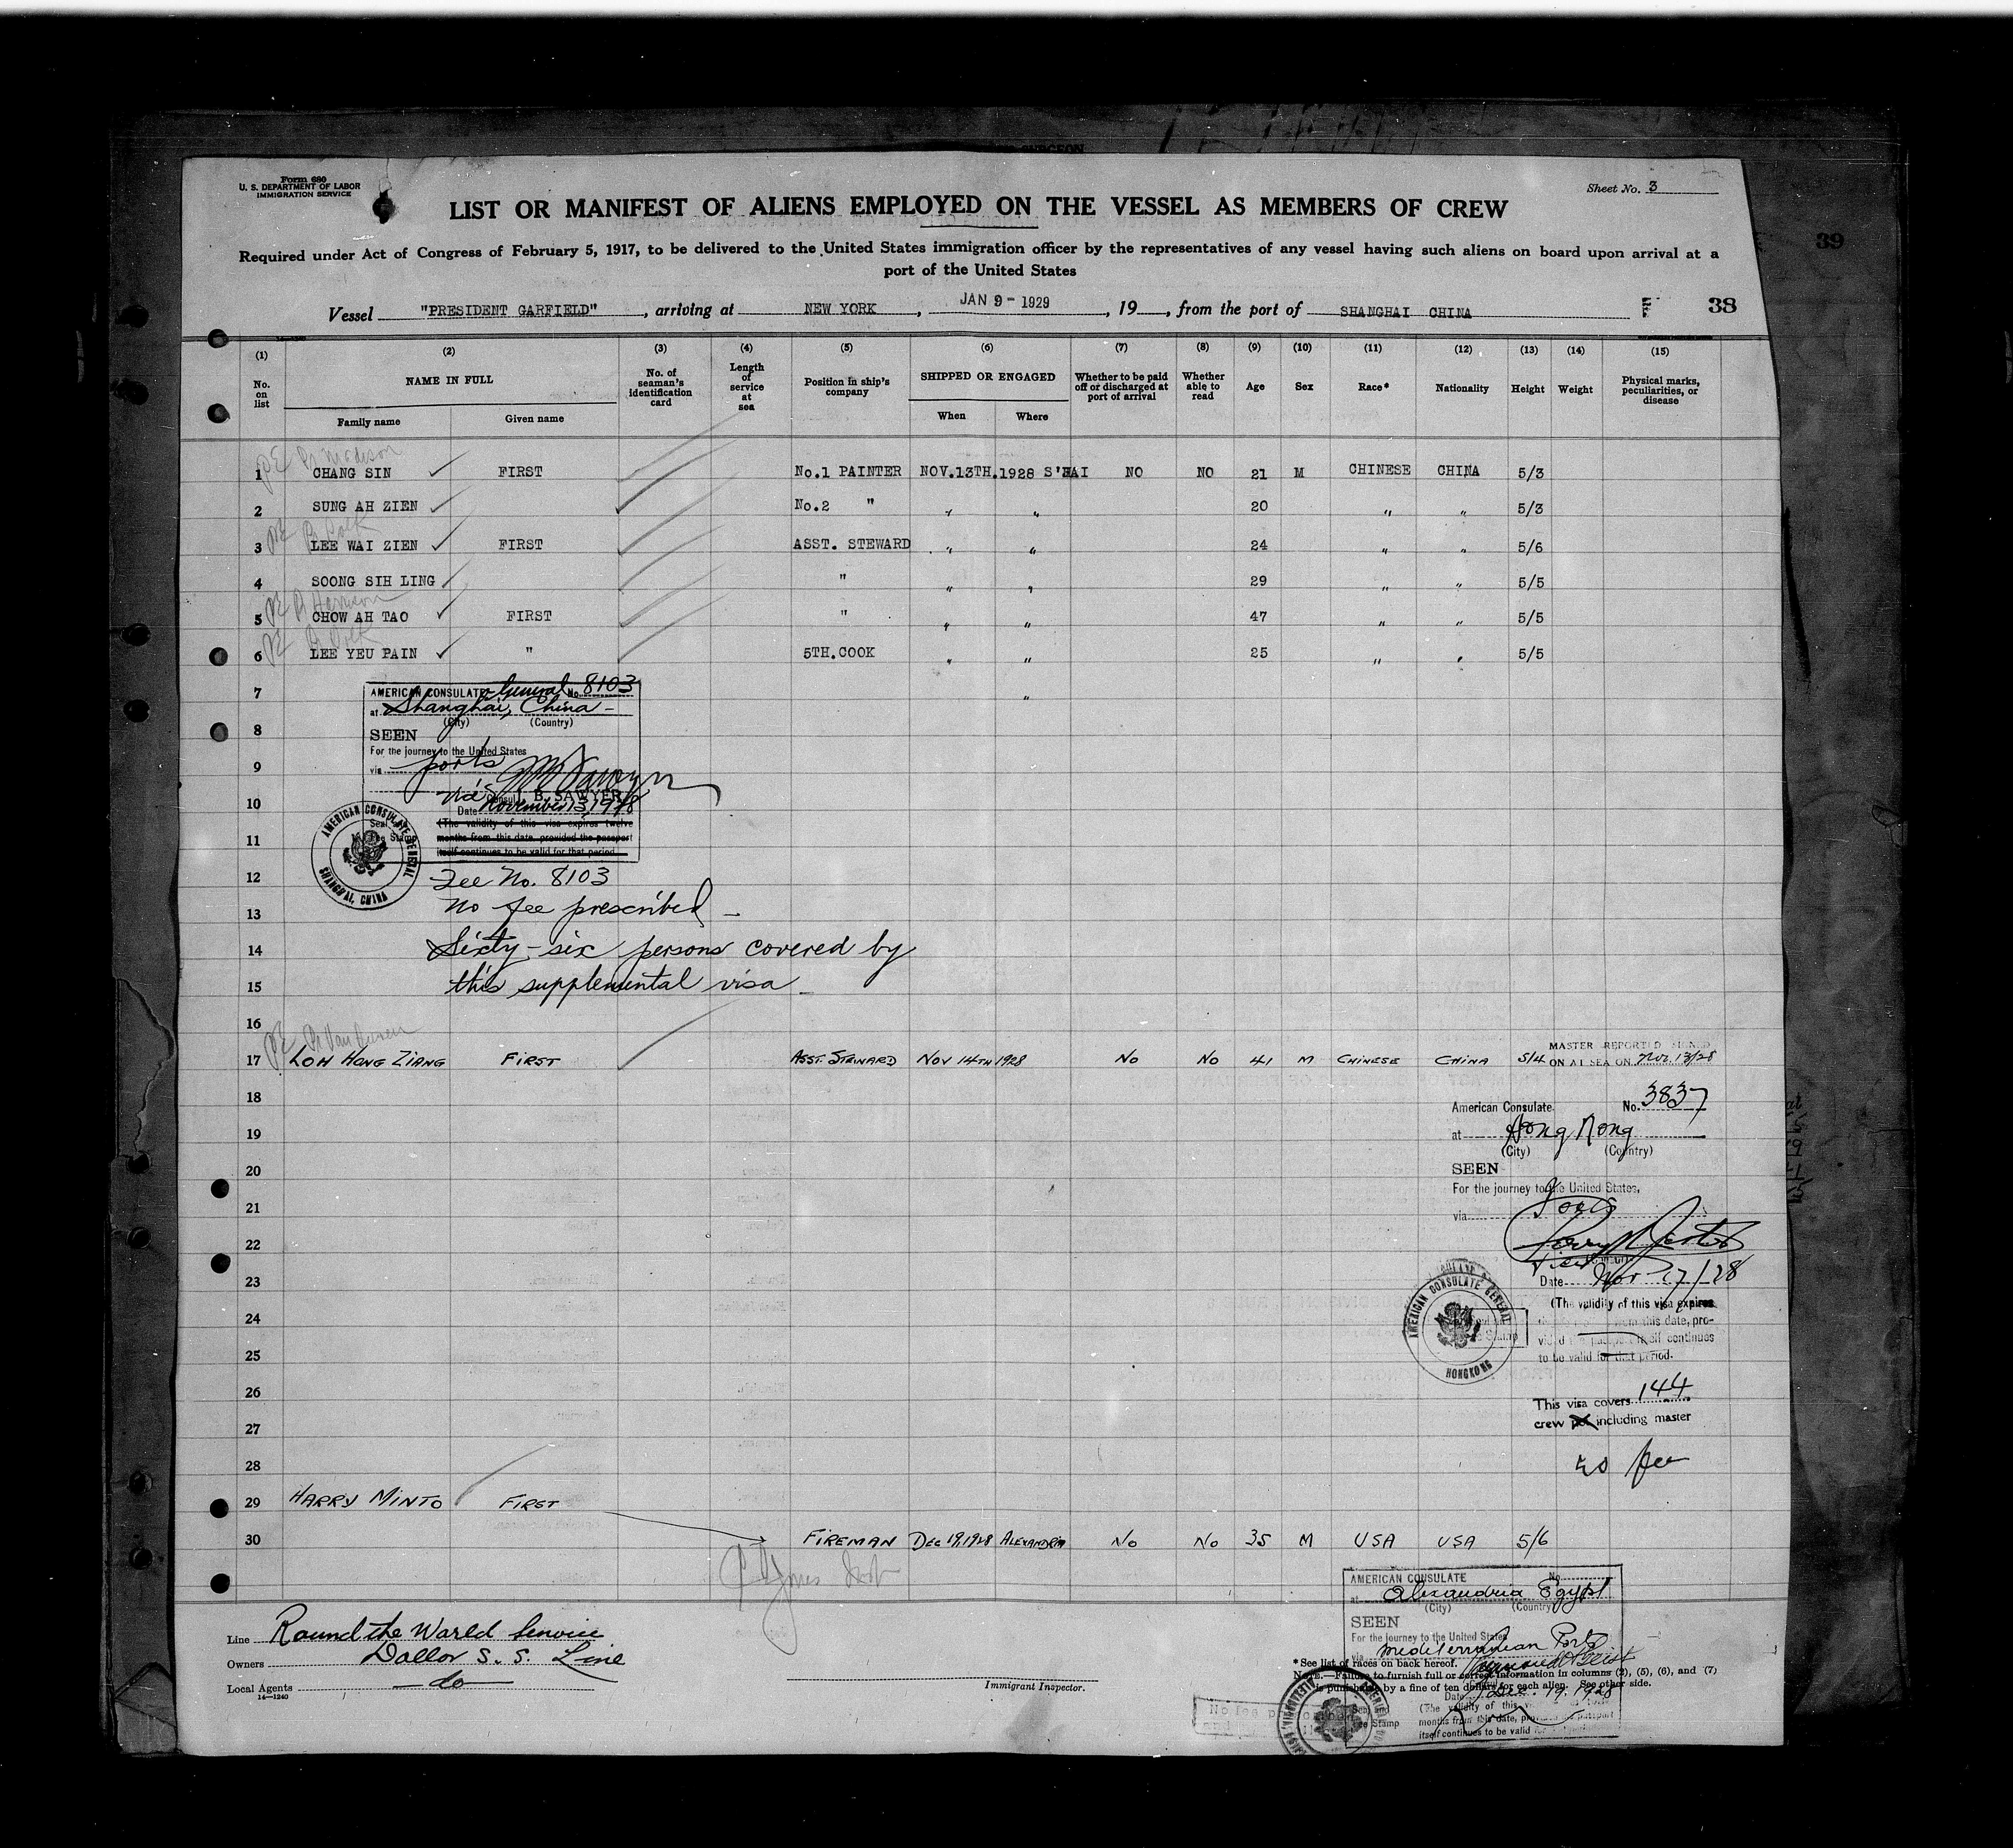 Form 680
U. S. DEPARTMENT OF LABOR
IMMIGRATION SERVICE
Sheet No. 3
LIST OR MANIFEST OF ALIENS EMPLOYED ON THE VESSEL AS MEMBERS OF CREW
Required under Act of Congress of February 5, 1917, to be delivered to the United States immigration officer by the representatives of any vessel having such aliens on board upon arrival at a
port of the United States
39
Vessel "PRESIDENT GARFIELD", arriving at NEW YORK, JAN 9 - 1929, 19, from the port of SHANGHAI CHINA
38
(1) (2) (3) (4) (5) (6) (7) (8) (9) (10) (11) (12) (13) (14) (15)
No. on list NAME IN FULL Family name Given name No. of seaman's identification card Length of service at sea Position in ship's company SHIPPED OR ENGAGED When Where Whether to be paid off or discharged at port of arrival Whether able to read Age Sex Race* Nationality Height Weight Physical marks, peculiarities, or disease
Pr Madison
1 CHANG SIN ✓ FIRST No.1 PAINTER NOV.13TH.1928 S'HAI NO NO 21 M CHINESE CHINA 5/3
2 SUNG AH ZIEN ✓ No.2 " " " 20 " " 5/3
Polk
3 LEE WAI ZIEN ✓ FIRST ASST. STEWARD " " 24 " " 5/6
4 SOONG SIH LING ✓ " " " 29 " " 5/5
Harrison
5 CHOW AH TAO ✓ FIRST " " " 47 " " 5/5
Polk
6 LEE YEU PAIN ✓ " 5TH.COOK " " 25 " " 5/5
7 "
8
9
10
11
12
13
14
15
16
AMERICAN CONSULATE General No. 8103
at Shanghai, China
(City) (Country)
SEEN
For the journey to the United States
via ports
Vice Consul J. B. SAWYER
Date November 13, 1928
(The validity of this visa expires twelve
months from this date, provided the passport
itself continues to be valid for that period.
AMERICAN CONSULATE GENERAL
SHANGHAI, CHINA
Fee No. 8103
No fee prescribed
Sixty-six persons covered by
this supplemental visa
Pr Van Buren
17 LOH HONG ZIANG FIRST ASST. STEWARD NOV 14TH 1928 NO NO 41 M CHINESE CHINA 5/4
MASTER REPORTED SIGNED
ON AT SEA ON Nov. 13/28
18
19
20
21
22
23
24
25
26
27
28
American Consulate No. 3837
at Hong Kong
(City) (Country)
SEEN
For the journey to the United States,
via
Date Nov 17/28
(The validity of this visa expires
from this date, pro-
vided the passport itself continues
to be valid for that period.
AMERICAN CONSULATE GENERAL
HONGKONG
This visa covers 144
crew not including master
no fee
29 HARRY MINTO FIRST
30 FIREMAN DEC 19,1928 ALEXANDRIA NO NO 35 M USA USA 5/6
AMERICAN CONSULATE No.
at Alexandria Egypt
(City) (Country)
SEEN
For the journey to the United States
via Mediterranean Ports
Date Dec. 19, 1928
(The validity of this
months from this date, provided the passport
itself continues to be valid for
Line Round the World Service
Owners Dollar S. S. Line
Local Agents —do—
14—1240
Immigrant Inspector.
*See list of races on back hereof.
NOTE.—Failure to furnish full or correct information in columns (2), (5), (6), and (7)
is punishable by a fine of ten dollars for each alien. See other side.